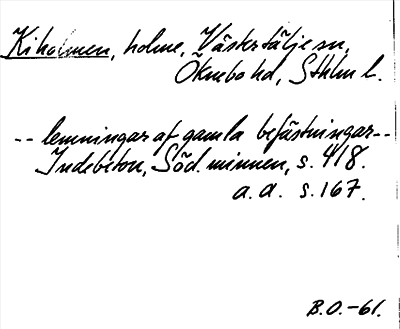 Kiholmen, holme, Västertälje sn,
Öknebo hd, Sthlm l.
-- lemningar af gamla befästningar --
Indebetou, Söd. minnen, s. 418.
a. a. s. 167.
B.O.-61.